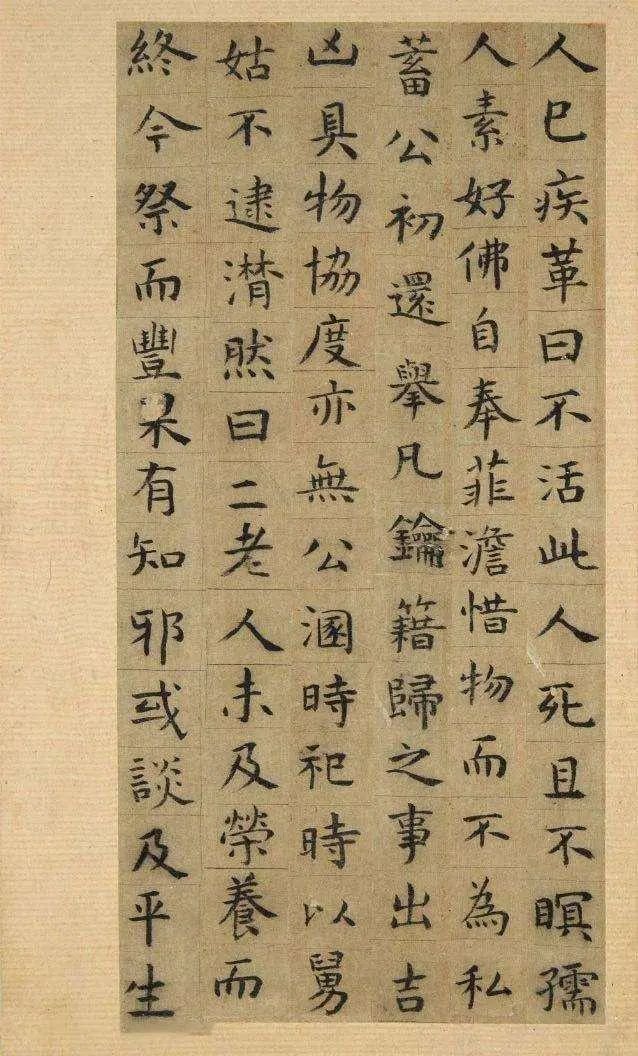 人已疾革曰不活此人死且不瞑孺
人素好佛自奉菲澹惜物而不為私
蓄公初還舉凡鑰籍歸之事出吉
凶具物協度亦無公溷時祀時以舅
姑不逮潸然曰二老人未及榮養而
終今祭而豐果有知邪或談及平生